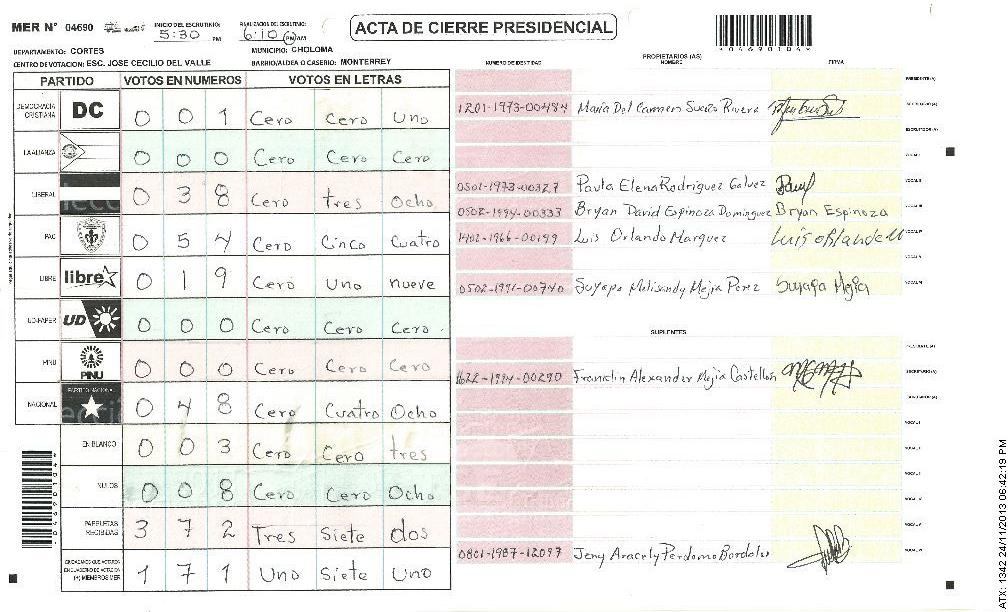 MER Nº 04690 INICIO DEL ESCRUTINIO: 5:30 PM FINALIZACION DEL ESCRUTINIO: 6:10 PM AM
ACTA DE CIERRE PRESIDENCIAL
*04690104*
DEPARTAMENTO: CORTES MUNICIPIO: CHOLOMA
CENTRO DE VOTACION: ESC. JOSE CECILIO DEL VALLE BARRIO/ALDEA O CASERIO: MONTERREY
PARTIDO VOTOS EN NUMEROS VOTOS EN LETRAS
DEMOCRACIA CRISTIANA DC 0 0 1 Cero Cero Uno
LA ALIANZA 0 0 0 Cero Cero Cero
LIBERAL 0 3 8 Cero tres Ocho
PAC 0 5 4 Cero Cinco Cuatro
LIBRE libre 0 1 9 Cero Uno nueve
UD-FAPER UD 0 0 0 Cero Cero Cero
PINU PINU 0 0 0 Cero Cero Cero
NACIONAL PARTIDO NACIONAL 0 4 8 Cero Cuatro Ocho
EN BLANCO 0 0 3 Cero Cero tres
NULOS 0 0 8 Cero Cero Ocho
PAPELETAS RECIBIDAS 3 7 2 Tres Siete dos
CIUDADANOS QUE VOTARON EN CUADERNO DE VOTACION (+) MIEMBROS MER 1 7 1 Uno Siete Uno
PROPIETARIOS (AS)
NUMERO DE IDENTIDAD NOMBRE FIRMA
PRESIDENTE(A)
1201-1973-00484 Maria Del Carmen Sueiro Rivera SECRETARIO(A)
ESCRUTADOR(A)
VOCAL I
0501-1973-00327 Paula Elena Rodriguez Galvez VOCAL II
0502-1994-00333 Bryan David Espinoza Dominguez Bryan Espinoza VOCAL III
1402-1966-00199 Luis Orlando Marquez Luis Orlando M VOCAL IV
VOCAL V
0502-1991-00740 Suyapa Melissandy Mejia Perez Suyapa Mejia VOCAL VI
SUPLENTES
PRESIDENTE(A)
1622-1994-00290 Franclin Alexander Mejia Castellon SECRETARIO(A)
ESCRUTADOR(A)
VOCAL I
VOCAL II
VOCAL III
VOCAL IV
VOCAL V
0801-1987-12097 Jeny Aracely Perdomo Bordales VOCAL VI
*04690104*
ATX: 1342 24/11/2013 06:42:19 PM